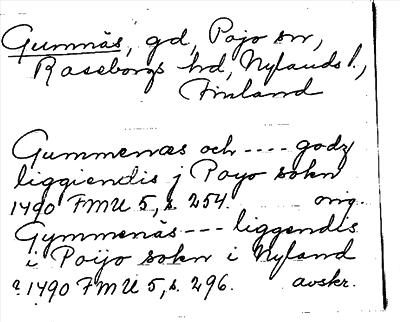 Gumnäs, gd, Pojo sn,
Raseborgs hd, Nylands l.,
Finland
Gummenæs och ---- godz
liggiendis j Poyo sokn
1490 FMU 5, s. 254. orig.
Gymmenäs --- liggendis
i Poijo sokn i Nyland
? 1490 FMU 5, s. 296. avskr.